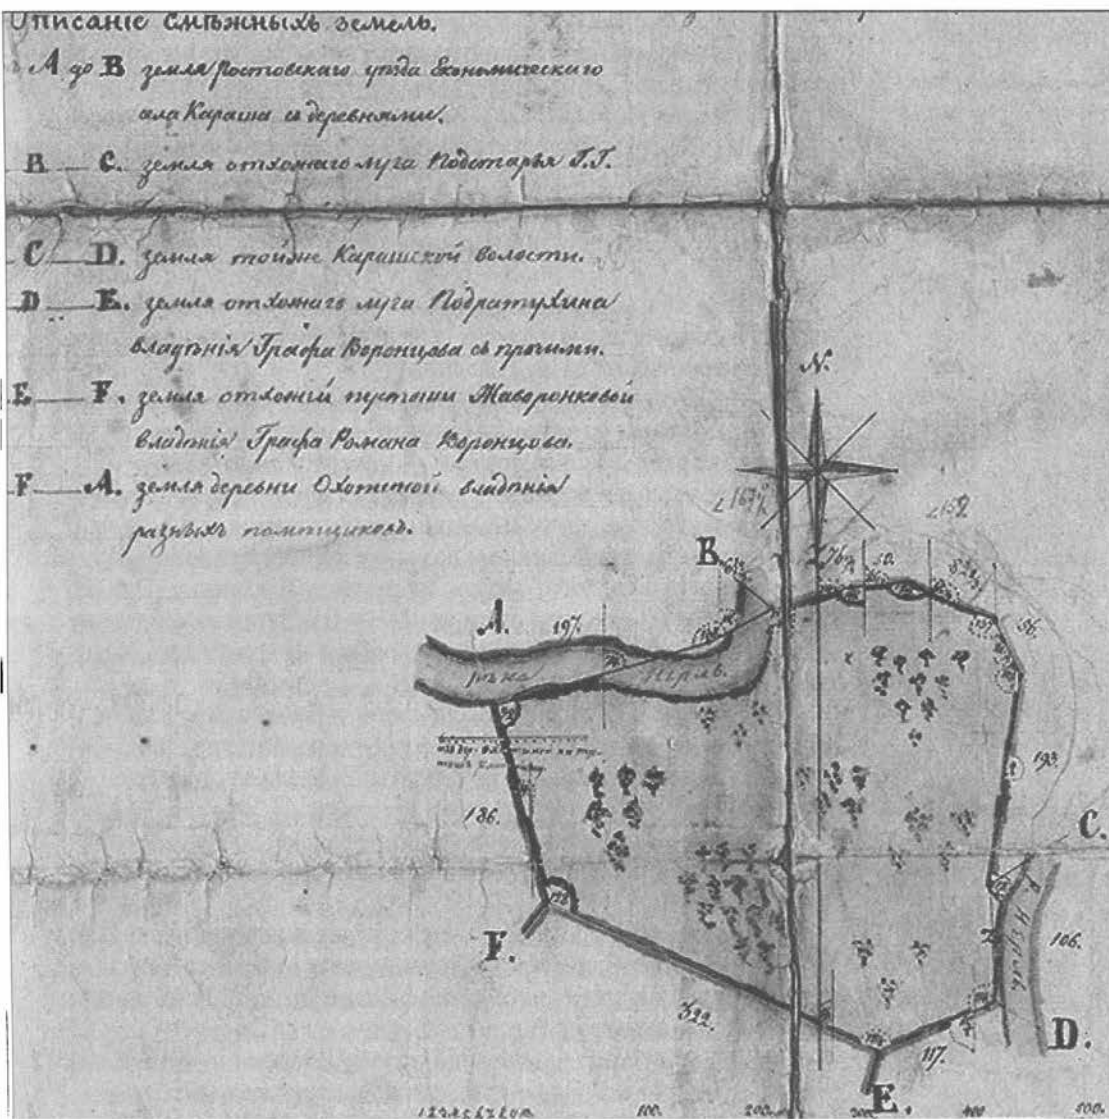 Описаніе смѣжныхъ земель.
А до В земля Ростовскаго уѣзда Економическаго
села Караша съ деревнями.
В — С. земля отхожаго луга Подстарья Г.Г.
С — D. земля тойже Карашской волости.
D — Е. земля отхожаго луга Подратухина
владѣнія Графа Воронцова съ прочими.
Е — F. земля отхожей пустоши Жаворонковой
владѣнія Графа Романа Воронцова.
F — А. земля деревни владѣнія
разныхъ помѣщиковъ.
N.
B
A.
197.
рѣка Нерль.
50.
56.
193.
186.
C.
F.
Нерль
106.
322.
D.
117.
E.
100. 200. 300. 400. 500.